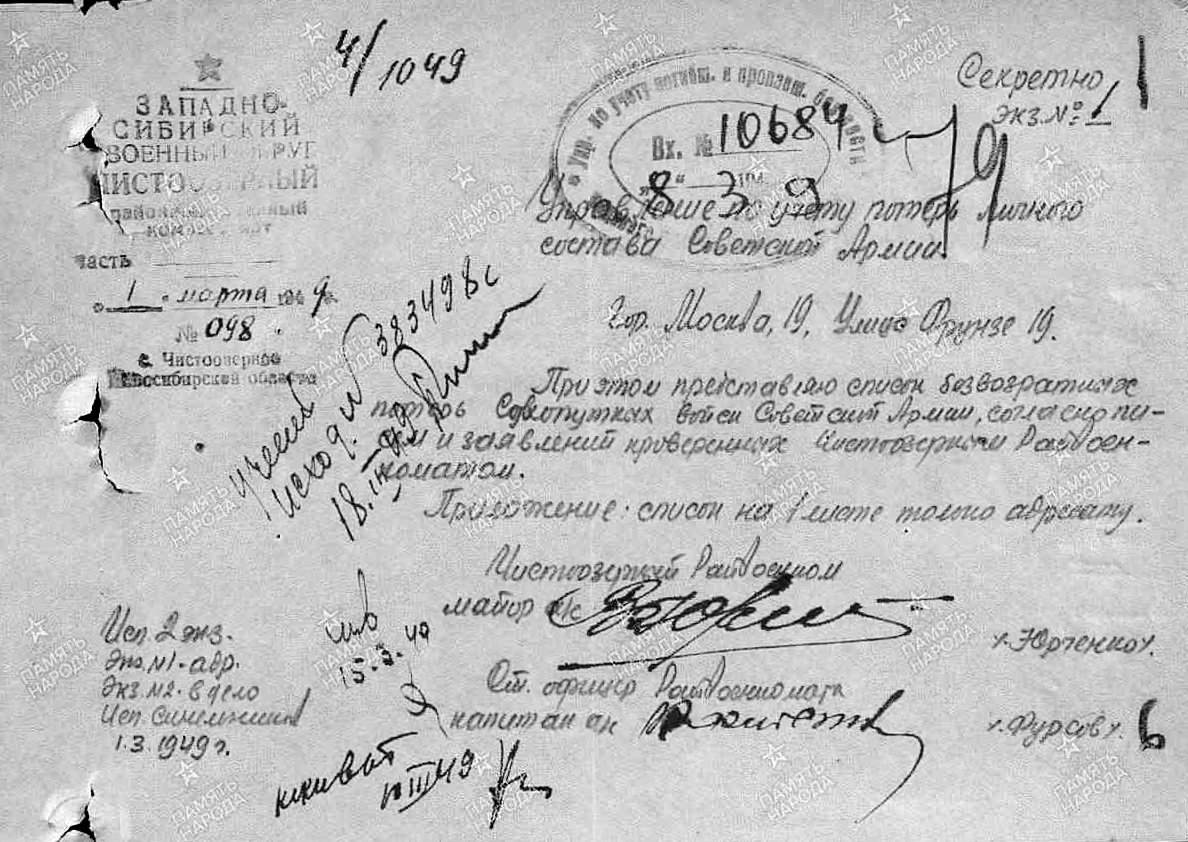 4/1049
Секретно
Экз. № 1
1
ЗАПАДНО-
СИБИРСКИЙ
ВОЕННЫЙ ОКРУГ
ЧИСТООЗЕРНЫЙ
районный военный
комиссариат
Часть
„1“ марта 1949 г.
№ 098
с. Чистоозерное
Новосибирской области
Упр. по учету погибш. и пропавш. без вести
Вх. № 10684с
„8“ 3 1949
Управление по учету потерь личного
состава Советской Армии
Гор. Москва, 19, Улица Фрунзе 19.
При этом представляю список безвозвратных
потерь Сухопутных войск Советской Армии, согласно пи-
сем и заявлений проверенных Чистоозерным Райвоен-
коматом.
Приложение: список на 1 листе только адресату.
учтены
исход. № 383498с
18.III 49
Чистоозерный Райвоенком
майор а/с
х. Юрченко х.
Ст. офицер Райвоенкомата
капитан ак
х. Фурсов х.
6
Исп. 2 экз.
Экз. №1 - адр.
Экз. №2 - в дело
Исп.
1.3.1949 г.
15.3.49
III 49
ПАМЯТЬ
НАРОДА